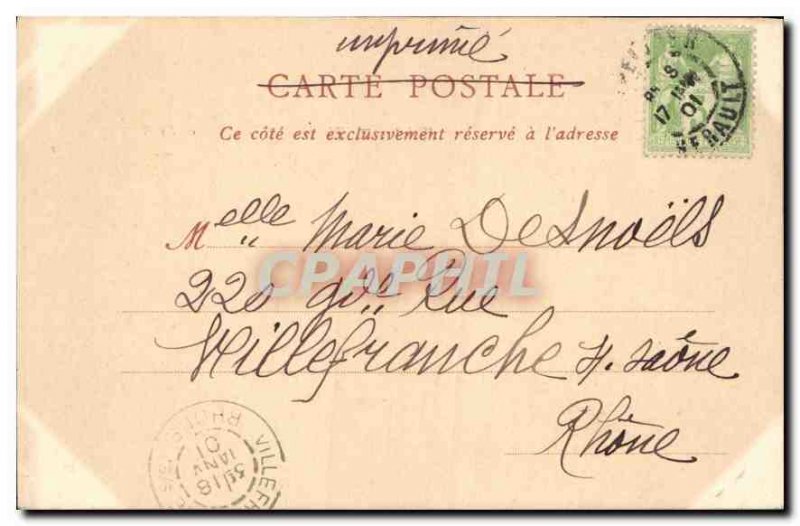 imprimé
CARTE POSTALE
Ce côté est exclusivement réservé à l'adresse
HÉRAULT
17 JANV 01
Melle Marie DeSnoëls
CPAPHIL
220 gde Rue
Villefranche s. Saône
Rhône
VILLEFR
RHÔNE
18 JANV 01